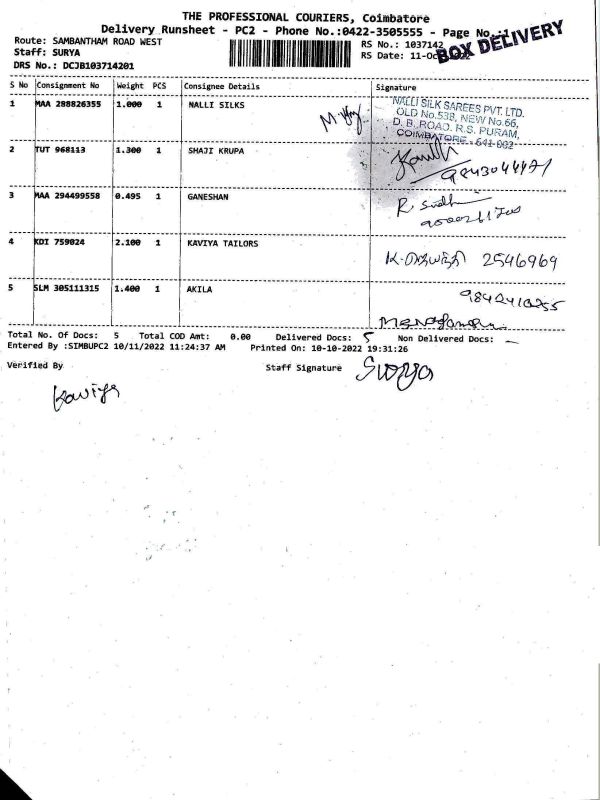 THE PROFESSIONAL COURIERS, Coimbatore
Delivery Runsheet - PC2 - Phone No.:0422-3505555 - Page No.
BOX DELIVERY
Route: SAMBANTHAM ROAD WEST RS No.: 1037142
Staff: SURYA RS Date: 11-Oct-2022
DRS No.: DCJB103714201
S No Consignment No Weight PCS Consignee Details Signature
1 MAA 288826355 1.000 1 NALLI SILKS
NALLI SILK SAREES PVT. LTD.
OLD No.538, NEW No.66,
D. B. ROAD, R.S. PURAM,
COIMBATORE - 641 002
2 TUT 968113 1.300 1 SHAJI KRUPA
3 MAA 294499558 0.495 1 GANESHAN
4 KDI 759024 2.100 1 KAVIYA TAILORS
2546969
5 SLM 305111315 1.400 1 AKILA
Total No. Of Docs: 5 Total COD Amt: 0.00 Delivered Docs: 5 Non Delivered Docs: -
Entered By :SIMBUPC2 10/11/2022 11:24:37 AM Printed On: 10-10-2022 19:31:26
Verified By Staff Signature Surya
Kaviya